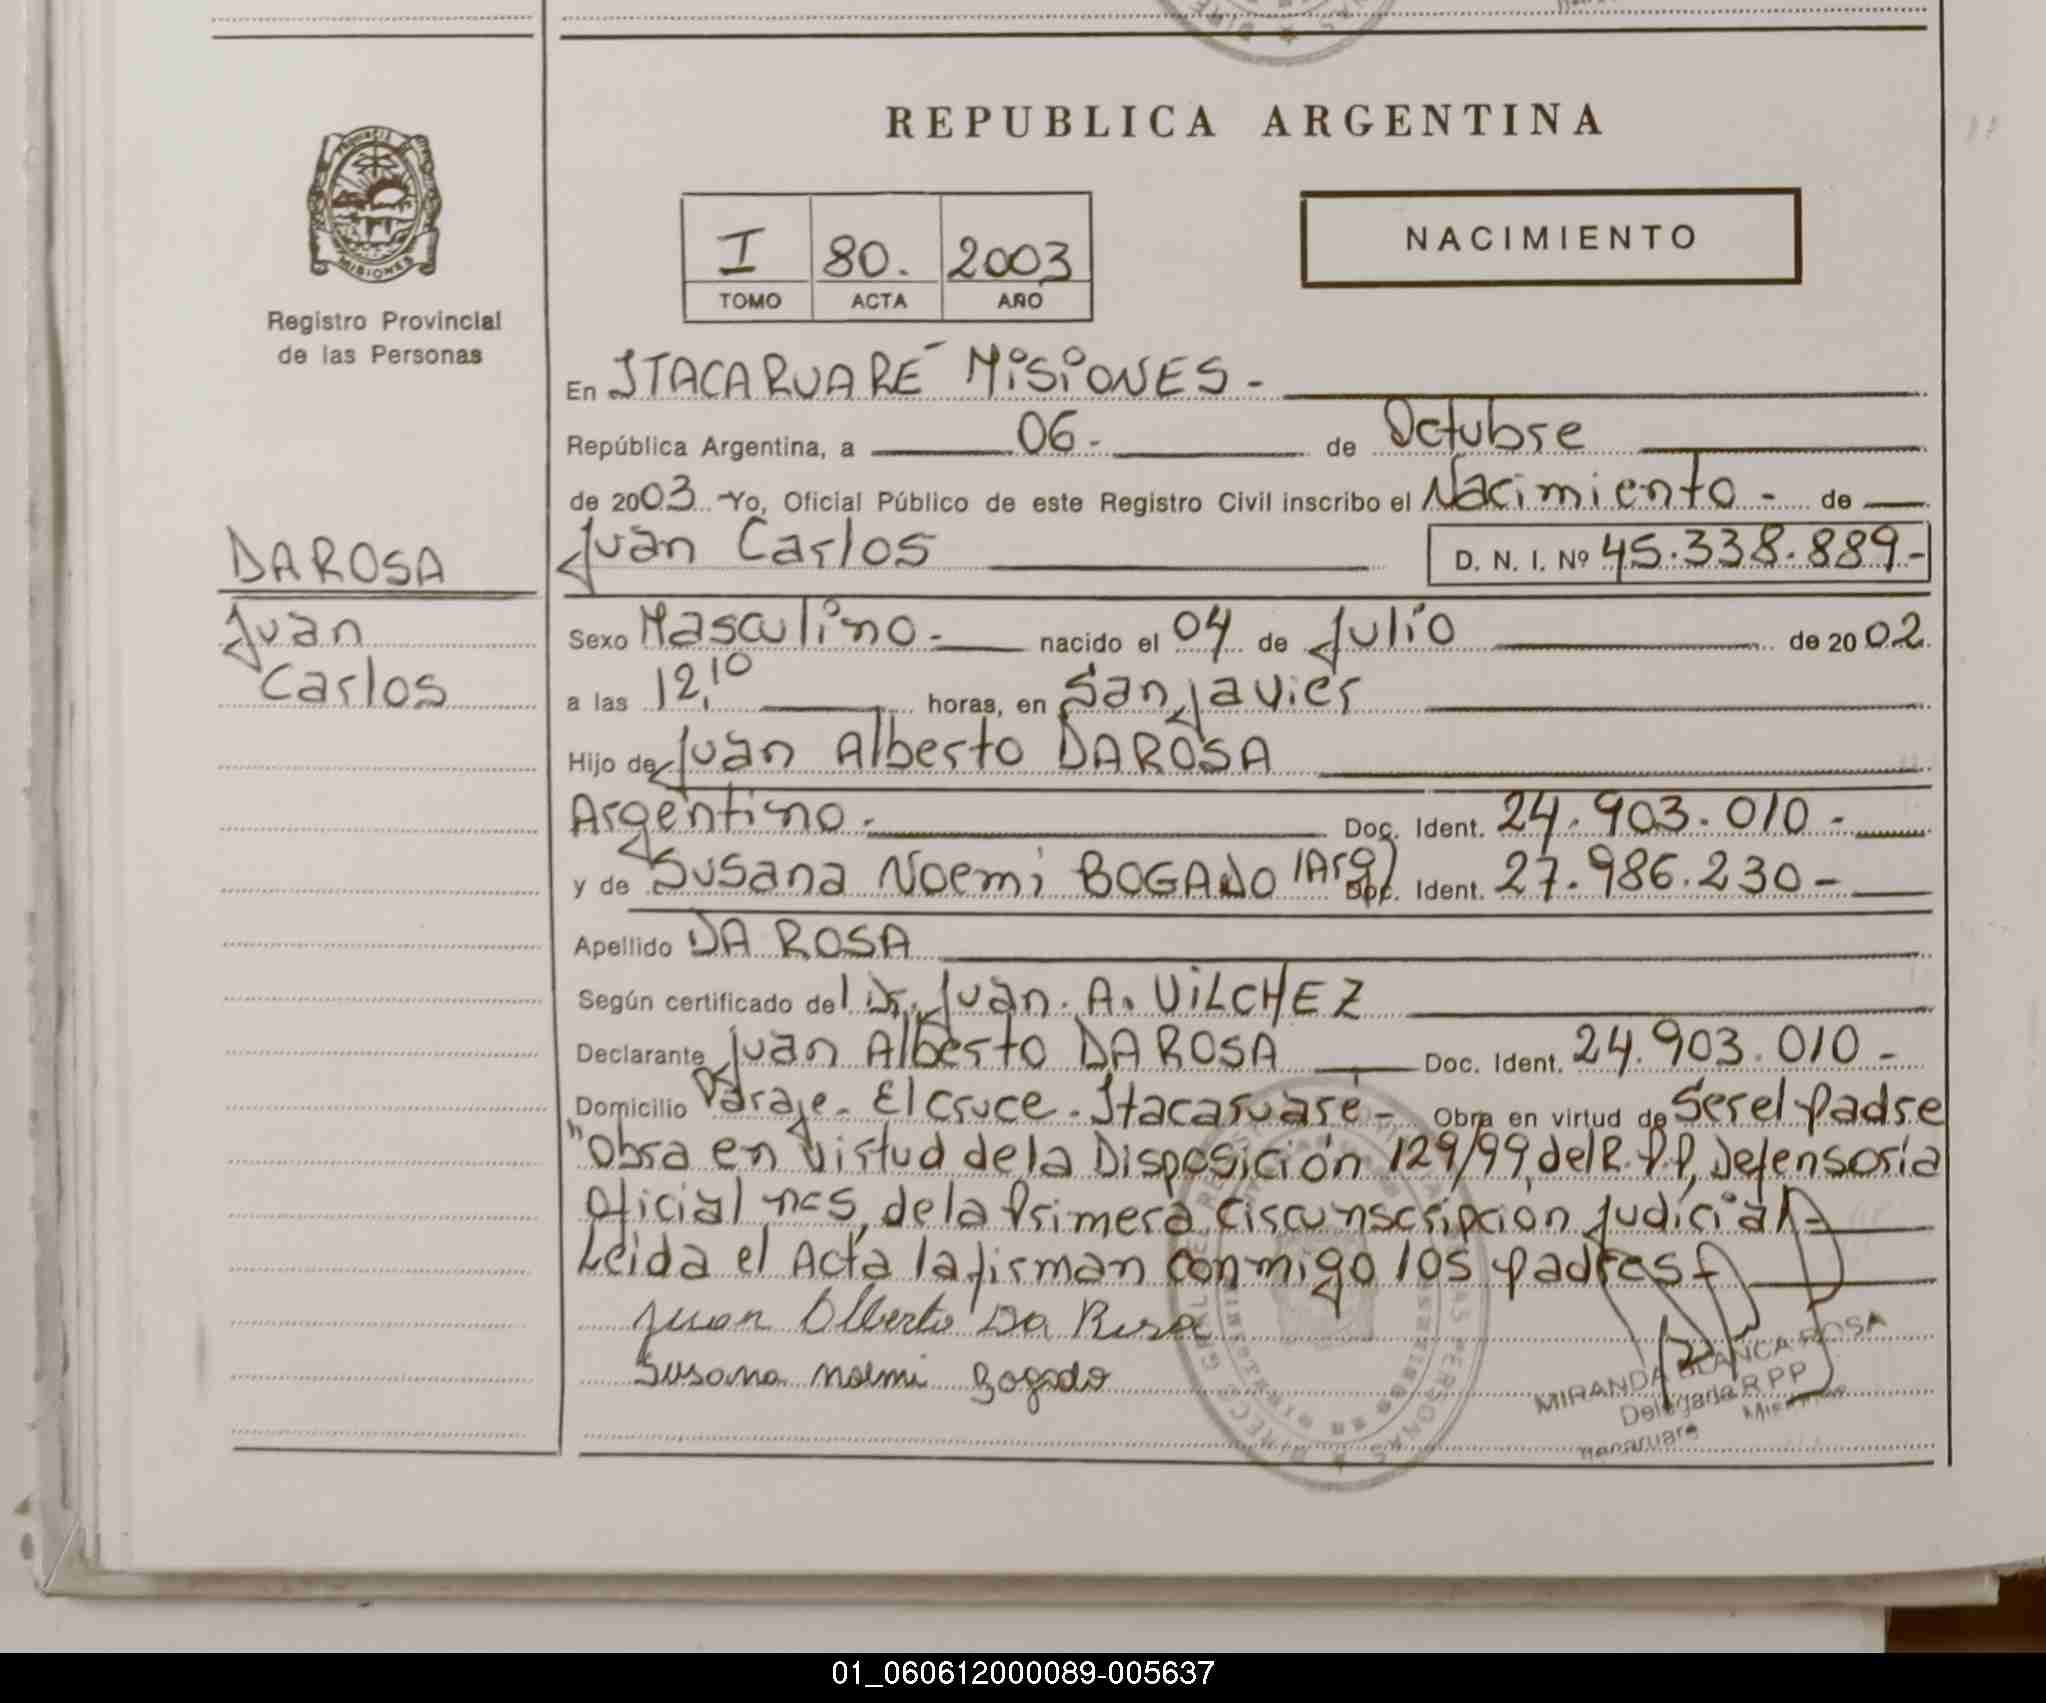 REPUBLICA ARGENTINA
PROVINCIA DE MISIONES
Registro Provincial
de las Personas
I 80. 2003
TOMO ACTA AÑO
NACIMIENTO
En ITACARUARÉ MISIONES -
República Argentina, a 06 - de Octubre
de 2003 - Yo, Oficial Público de este Registro Civil inscribo el Nacimiento - de
DA ROSA
Juan
Carlos
Juan Carlos D. N. I. Nº 45.338.889-
Sexo Masculino - nacido el 04 de Julio de 2002
a las 12,10 horas, en San Javier
Hijo de Juan Alberto DA ROSA
Argentino - Doc. Ident. 24.903.010 -
y de Susana Noemi BOGADO (Arg) Doc. Ident. 27.986.230 -
Apellido DA ROSA
Según certificado del Dr. Juan. A. VILCHEZ
Declarante Juan Alberto DA ROSA Doc. Ident. 24.903.010 -
Domicilio Paraje - El Cruce - Itacaruaré - Obra en virtud de Ser el padre
"Obra en virtud de la Disposición 129/99, del R.P.P, Defensoría
Oficial nº5, de la Primera Circunscripción Judicial -
Leida el Acta la firman conmigo los padres
Juan Alberto Da Rosa
Susana Noemi Bogado
MIRANDA BLANCA ROSA
Delegada R P P
Itacaruare Misiones
01_060612000089-005637